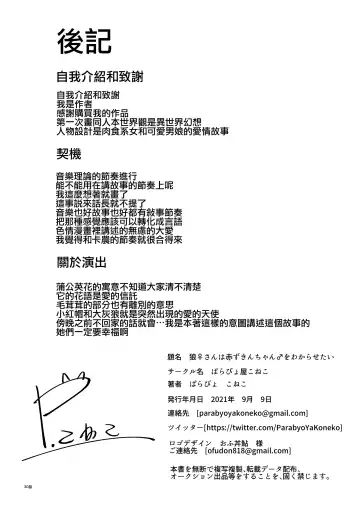 後記
自我介紹和致謝
自我介紹和致謝
我是作者
感謝購買我的作品
第一次畫同人本世界觀是異世界幻想
人物設計是肉食系女和可愛男娘的愛情故事
契機
音樂理論的節奏進行
能不能用在講故事的節奏上呢
我這麼想著就畫了
這事説來話長就不提了
音樂也好故事也好都有敍事節奏
把那種感覺應該可以轉化成言語
色情漫畫裡講述的無慮的大愛
我覺得和卡農的節奏就很合得來
關於演出
蒲公英花的寓意不知道大家清不清楚
它的花語是愛的信託
毛茸茸的部分也有離別的意思
小紅帽和大灰狼就是突然出現的愛的天使
傍晚之前不回家的話就會…我是本著這樣的意圖講述這個故事的
她們一定要幸福啊
題名 狼♀さんは赤ずきんちゃん♂をわからせたい
サークル名 ぱらぴょ屋こねこ
著者 ぱらぴょ こねこ
発行年月日 2021年 9月 9日
連絡先 [parabyoyakoneko@gmail.com]
ツイッター[https://twitter.com/ParabyoYaKoneko]
ロゴデザイン おふ丼鮎 様
ご連絡先 [ofudon818@gmail.com]
本書を無断で複写複製、転載データ配布、
オークション出品等をすることを、固く禁じます。
P.こねこ